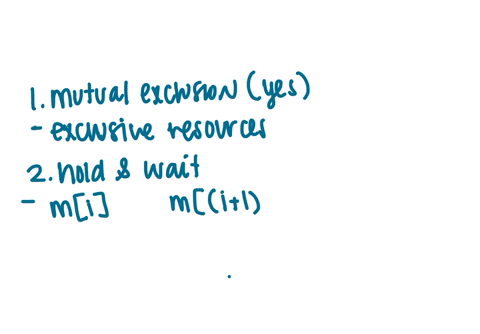 1. mutual exclusion (yes)
- exclusive resources
2. hold & wait
- m[i] m[(i+1)